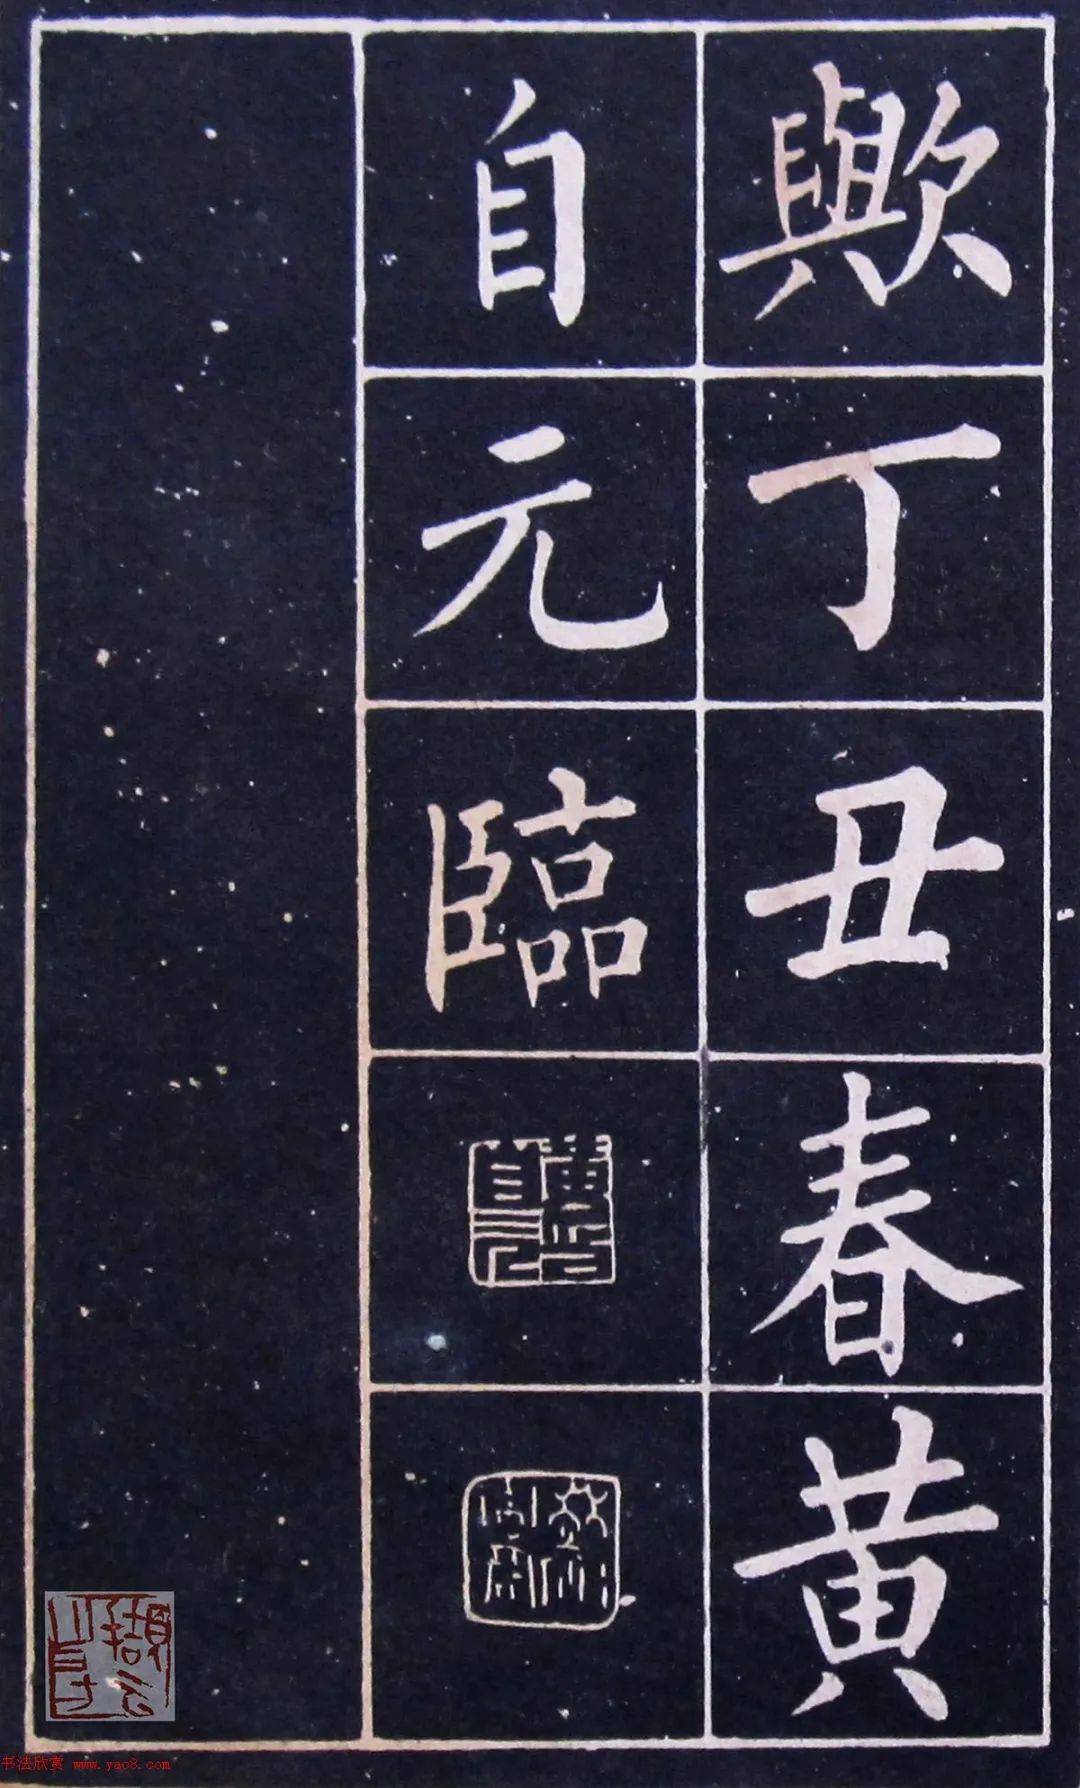 歟丁丑春黄
自元臨
书法欣赏 www.yac8.com